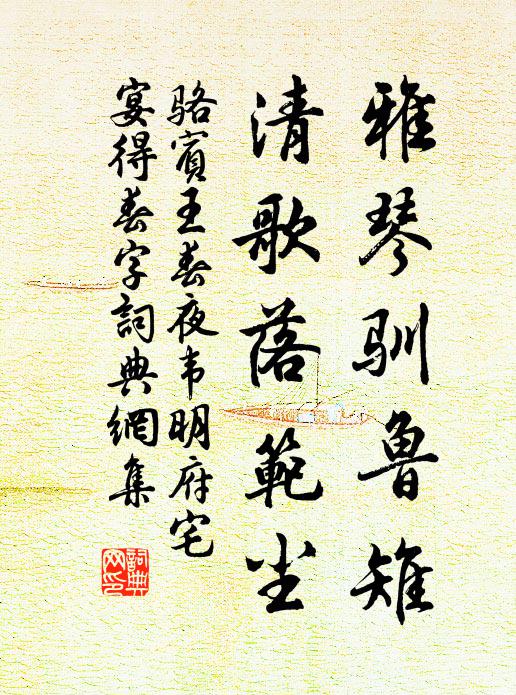 雅琴驯魯雉
清歌落範尘
骆賓王春夜韦明府宅
宴得春字詞典網集
詞典
网印